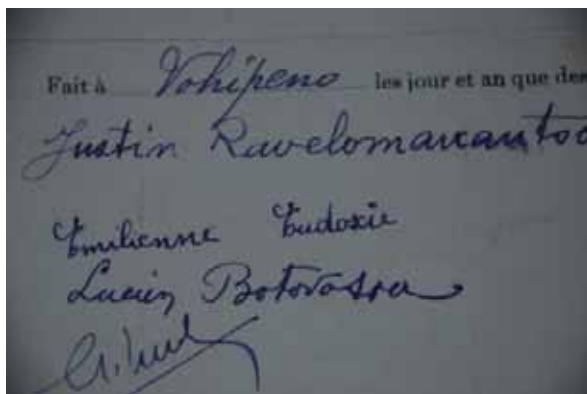 Fait à Vohipeno les jour et an que des
Justin Ravelomanantoa
Emilienne Eudoxie
Lucien Botovasoa